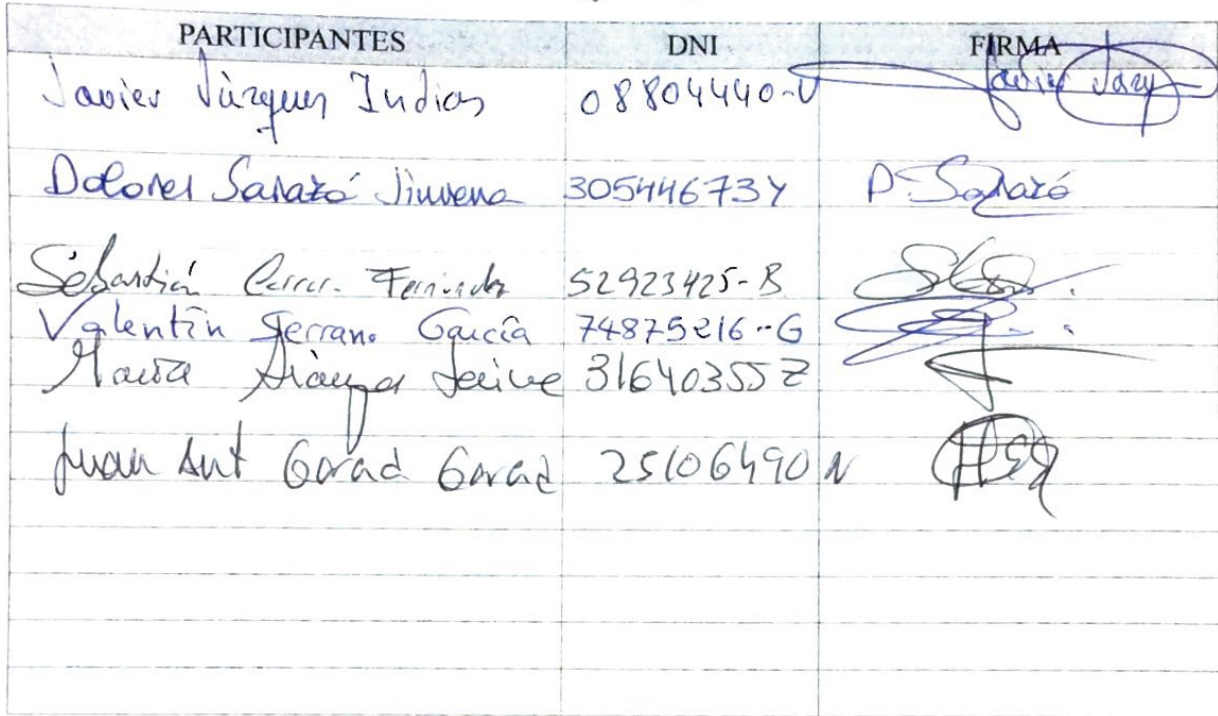 PARTICIPANTES DNI FIRMA
Javier Vázquez Indias 08804440-V Javier Vázq
Dolores Sarazá Jimena 30544673Y D. Sarazá
Sebastián Fernández 52923425-B
Valentín Serrano García 74875216-G
María 31640355Z
Juan Ant García García 25106490N